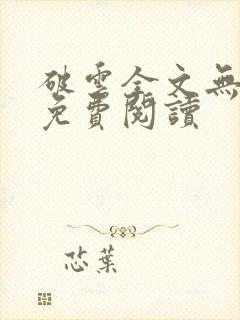 破雲全文無
免費閱讀
芯葉